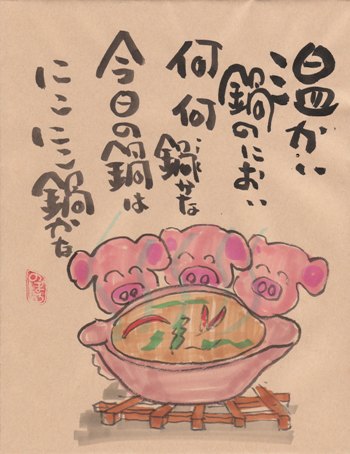 温かい
鍋のにおい
何何鍋かな
今日の鍋は
にこにこ鍋かな